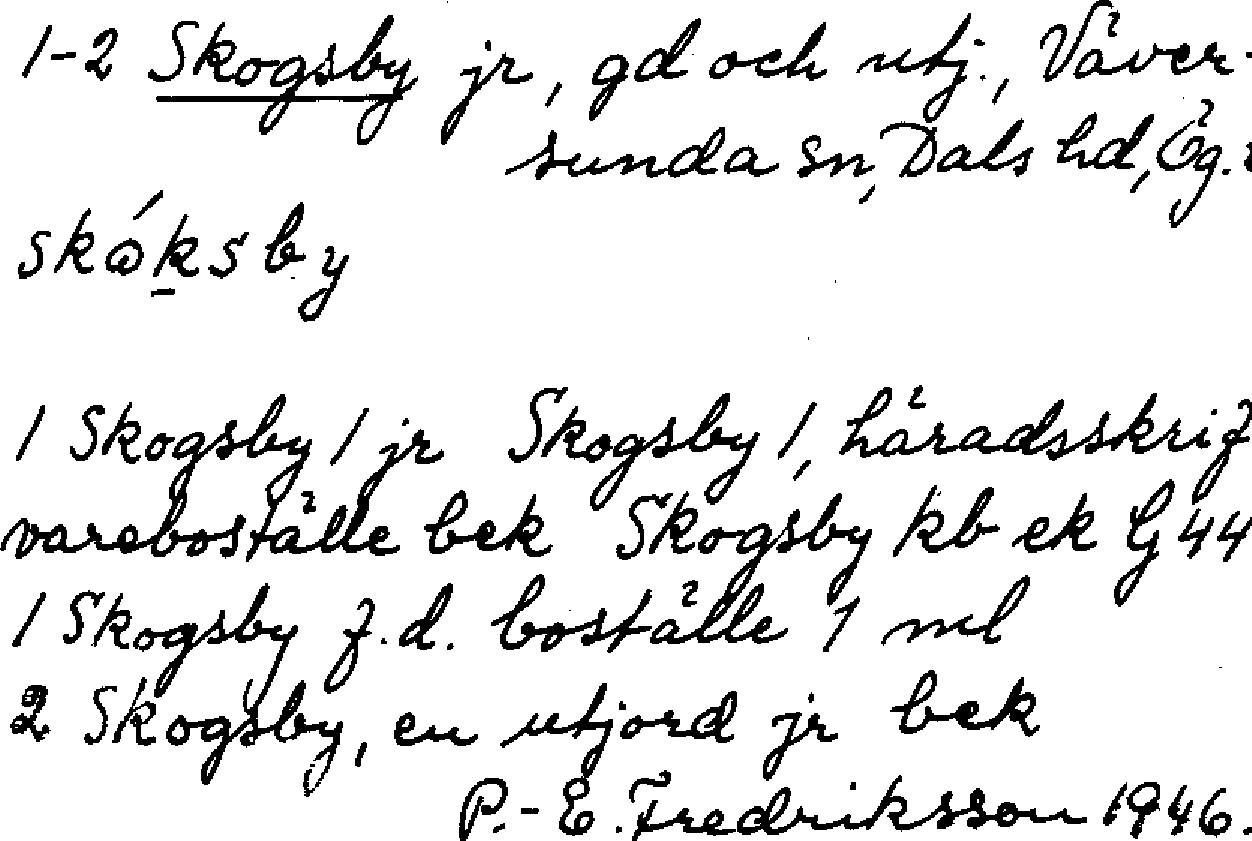 1-2 Skogsby jr, gd och utj., Väver-
sunda sn, Dals hd, Ög.
skɷ́ksby
1 Skogsby 1 jr Skogsby 1, häradsskrif
vareboställe bek Skogsby kb ek G 44
1 Skogsby f.d. boställe 1 ml
2 Skogsby, en utjord jr bek
P.-E. Fredriksson 1946.